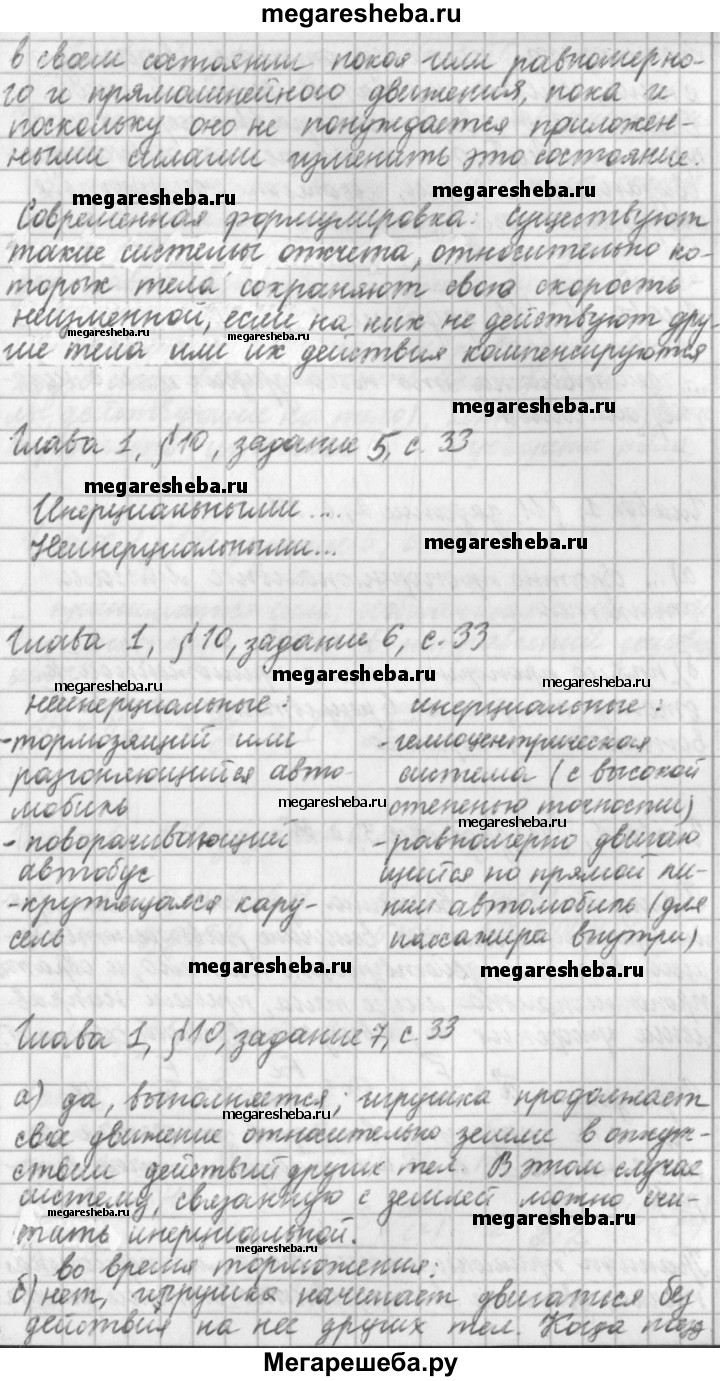 megaresheba.ru
в своем состоянии покоя или равномерно-
го и прямолинейного движения, пока и
поскольку оно не понуждается приложен-
ными силами изменить это состояние.
megaresheba.ru
megaresheba.ru
Современная формулировка: существуют
такие системы отсчета, относительно ко-
торых тела сохраняют свою скорость
неизменной, если на них не действуют дру
megaresheba.ru
megaresheba.ru
гие тела или их действия компенсируются
megaresheba.ru
Глава 1, §10, задание 5, с. 33
megaresheba.ru
Инерциальными....
Неинерциальными...
megaresheba.ru
Глава 1, §10, задание 6, с. 33
megaresheba.ru
megaresheba.ru
megaresheba.ru
неинерциальные: инерциальные:
-тормозящий или - гелиоцентрическая
разгоняющийся авто- система (с высокой
мобиль степенью точности)
megaresheba.ru
- поворачивающий - равномерно двигаю
автобус щийся по прямой ли-
-крутящаяся кару- нии автомобиль (для
сель пассажира внутри)
megaresheba.ru
megaresheba.ru
Глава 1, §10, задание 7, с. 33
а) да, выполняется; игрушка продолжает
megaresheba.ru
свое движение относительно земли в отсут-
ствии действий других тел. В этом случае
систему, связанную с землей можно счи-
megaresheba.ru
megaresheba.ru
тать инерциальной.
megaresheba.ru
во время торможения:
б) нет, игрушка начинает двигаться без
megaresheba.ru
действия на нее других тел. Когда поезд
Мегарешеба.ру